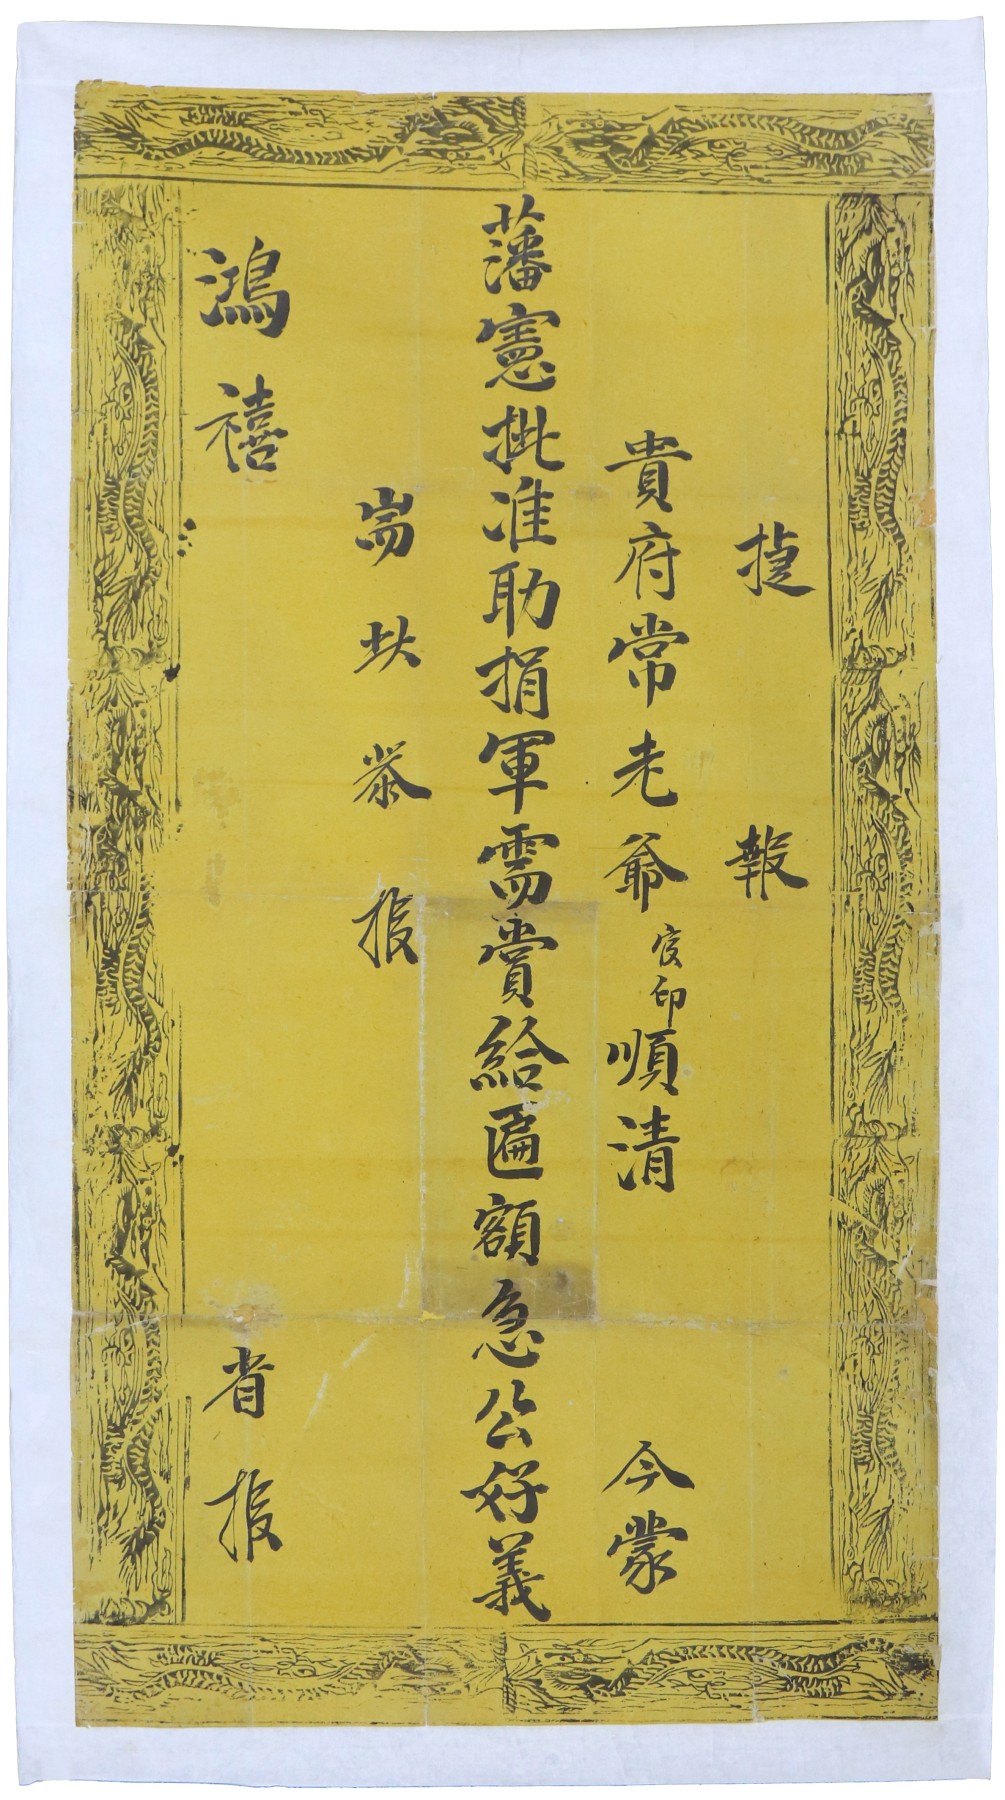 捷報
貴府常老爺官印順清 今蒙
藩憲批准助捐軍需賞給匾額急公好義
耑此恭報
鴻禧 省報